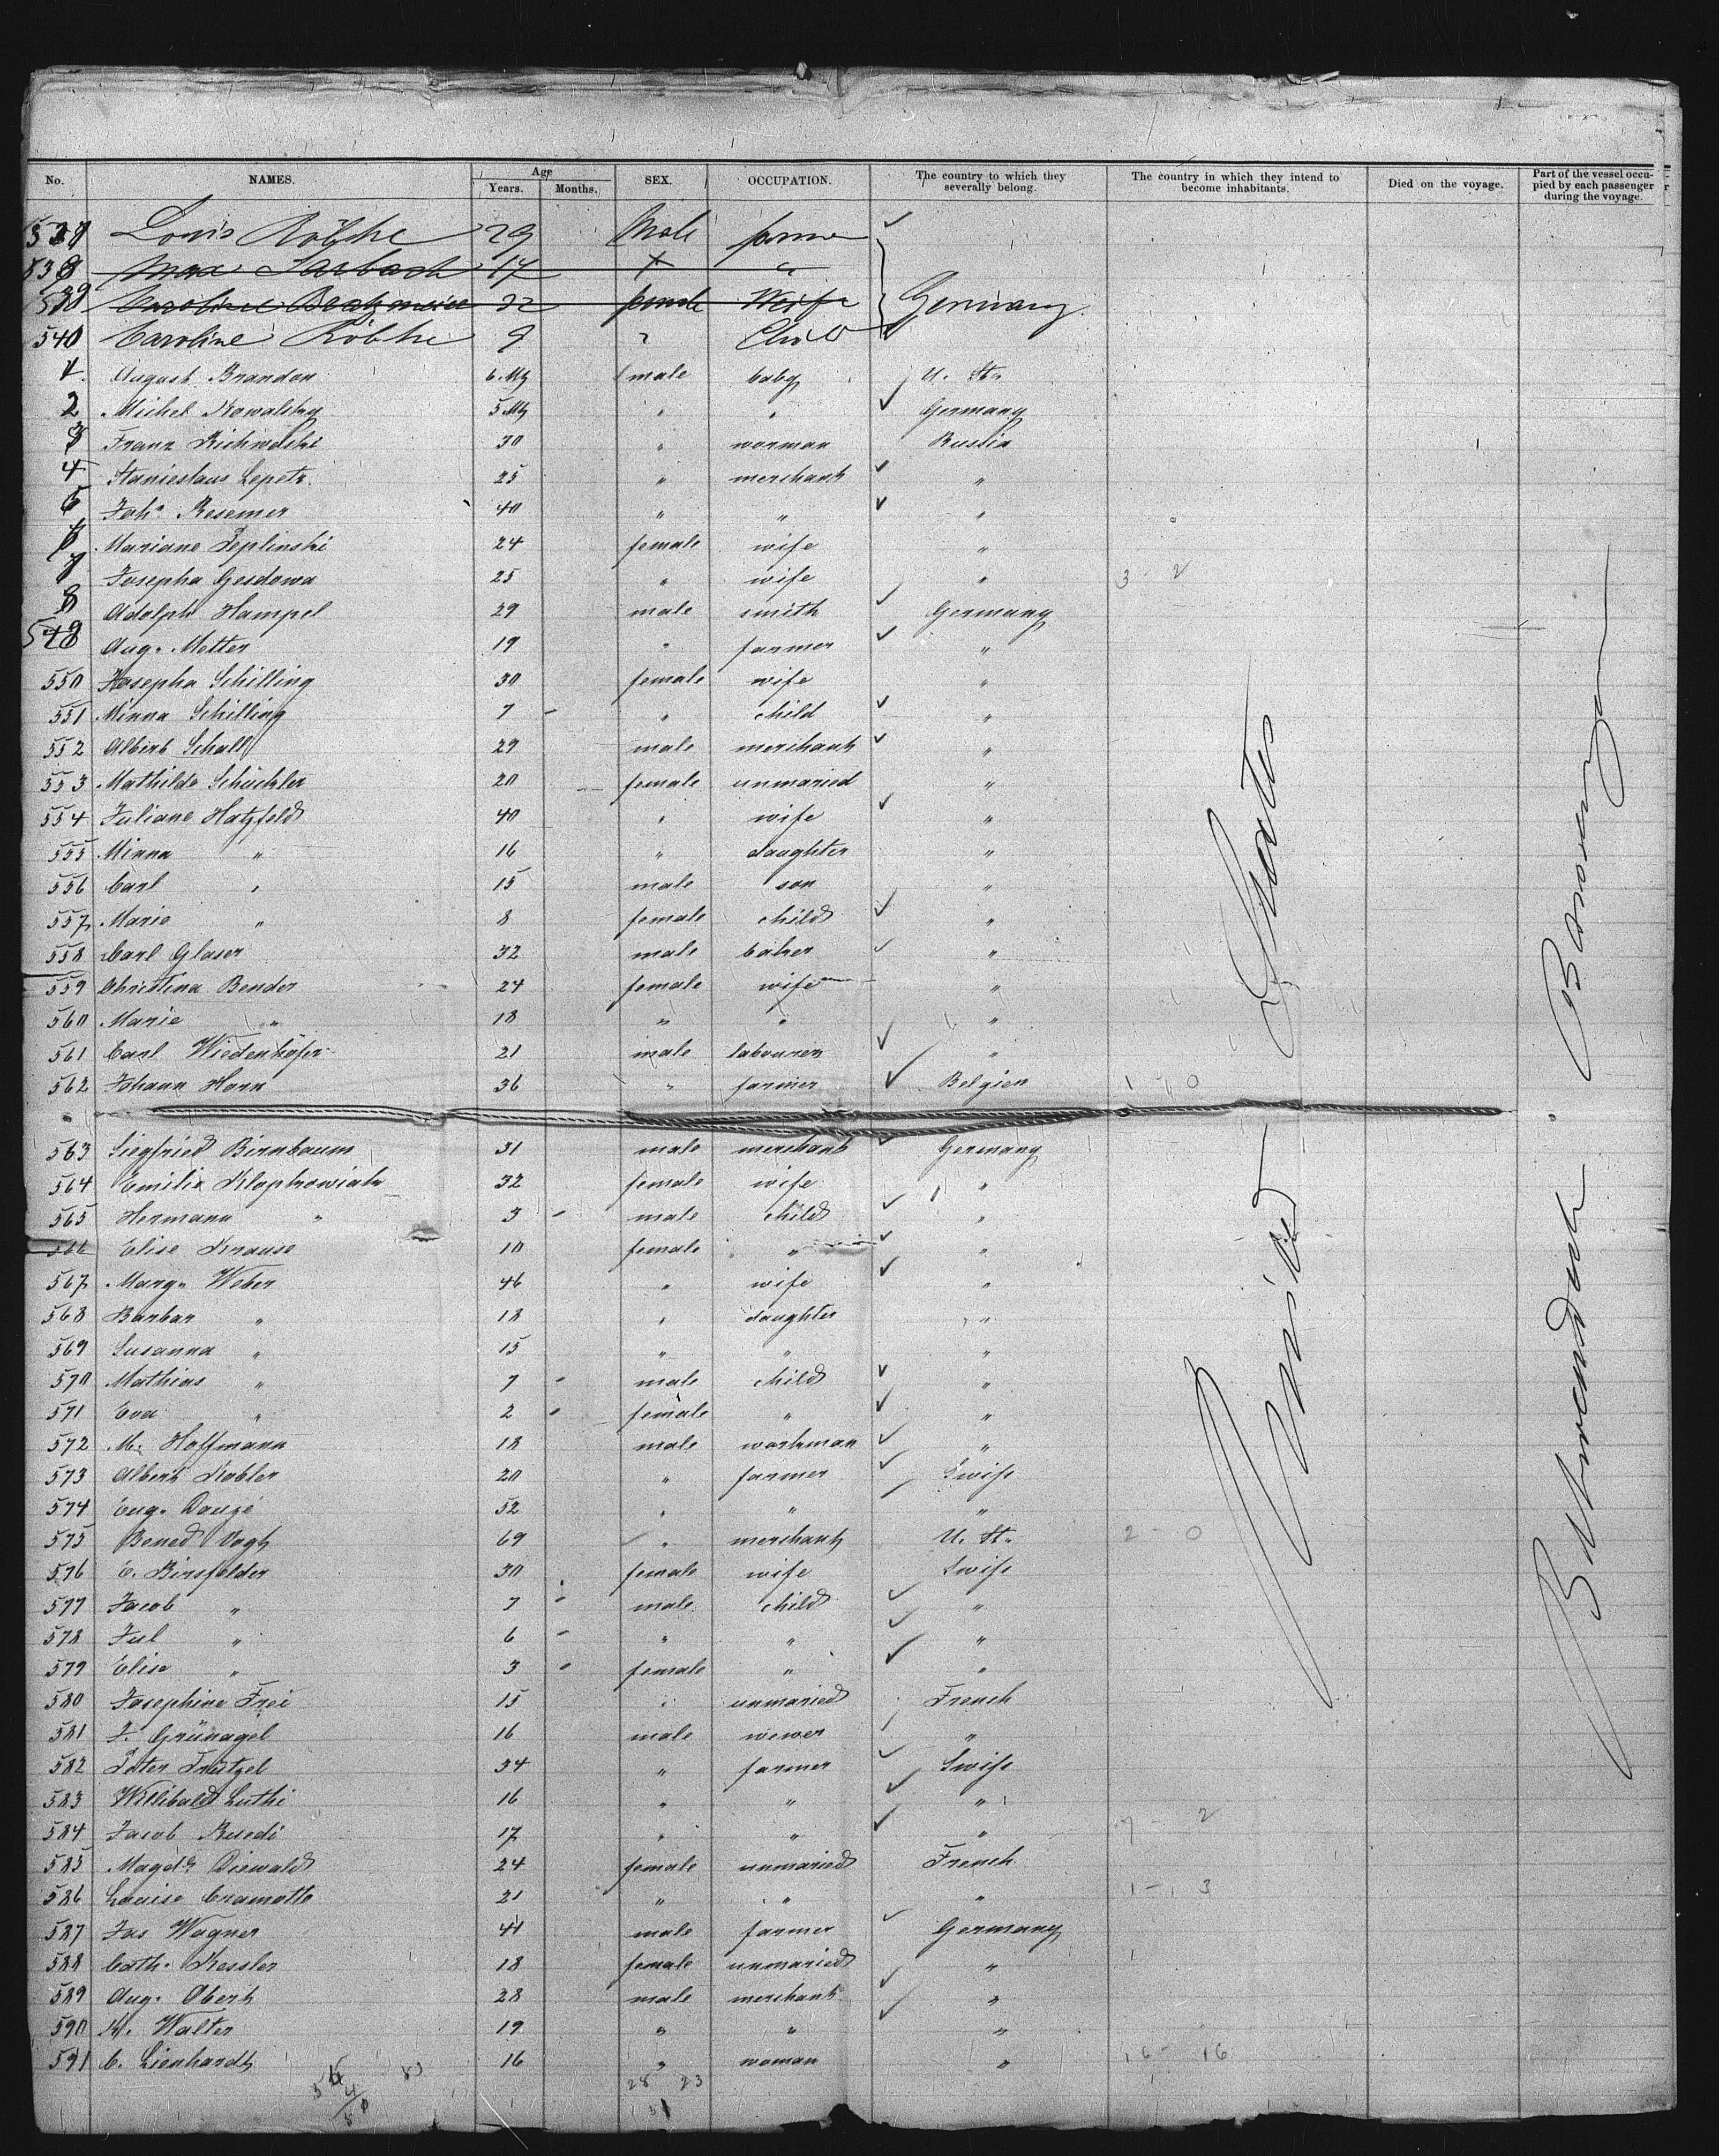 No. NAMES. Age Years. Months. SEX. OCCUPATION. The country to which they severally belong. The country in which they intend to become inhabitants. Died on the voyage. Part of the vessel occupied by each passenger during the voyage.
537 Louis Röbke 29 Male farmer
538 Max 17 "
539 Caroline 32 female Weife Germany.
540 Caroline Röbke 9 " Child
1 August Brandon 6 M male baby U. St.
2 Michel Kowalsky 5 M " " Germany
3 Franz 30 " worman Russia
4 Stanieslaus Lepetz. 25 " merchant "
5 Joh. Resemer 40 " " "
6 Mariane Peplinski 24 female wife "
7 Josepha Gesdowa 25 " wife " 3 - 2
8 Adolph Hampel 29 male smith Germany
549 Aug. Metter 19 " farmer "
550 Josepha Schilling 30 female wife "
551 Minna Schilling 7 - " child "
552 Albert Schall 29 male merchant "
553 Mathilde Schüchler 20 female unmaried "
554 Juliane Hatzfeld 40 " wife "
555 Minna " 16 " daughter "
556 Carl " 15 male son "
557 Marie " 8 female child "
558 Carl Glaser 32 male baker "
559 Christina Bender 24 female wife "
560 Marie " 18 " " "
561 Carl Wiedenhöfer 21 male labourer "
562 Johann Horn 36 " farmer Belgien 1 - 0
563 Siegfried Birnbaum 31 male merchant Germany
564 Emilie Klophowiak 32 female wife "
565 Hermann " 3 - male child "
566 Elise Krause 10 female " "
567 Marg. Weber 46 " wife "
568 Barbar " 18 " daughter "
569 Susanna " 15 " " "
570 Mathias " 7 - male child "
571 Eva " 2 - female " "
572 M. Hoffmann 18 male workman "
573 Albert Kobler 20 " farmer Swiss
574 Eug. Douzé 52 " " "
575 Bened Vogt 69 " merchant U. St. 2 - 0
576 C. Birsfelder 30 female wife Swiss
577 Jacob " 7 - male child "
578 Jul " 6 - " " "
579 Elise " 3 - female " "
580 Josephine Frei 15 " unmaried French
581 F. Grünagel 16 male wewer "
582 Peter Trutzel 34 " farmer Swiss
583 Willibald Luthi 16 " " "
584 Jacob Ruedi 17 " " " 7 - 2
585 Magd. Diewald 24 female unmaried French
586 Louise Cramotte 21 " " " 1 - 3
587 Jos Wagner 44 male farmer Germany
588 Cath. Kessler 18 female unmaried "
589 Aug. Obert 28 male merchant "
590 K. Walter 19 " " "
591 C. Lienhardt 16 " woman " 16 - 16
28 23
United States